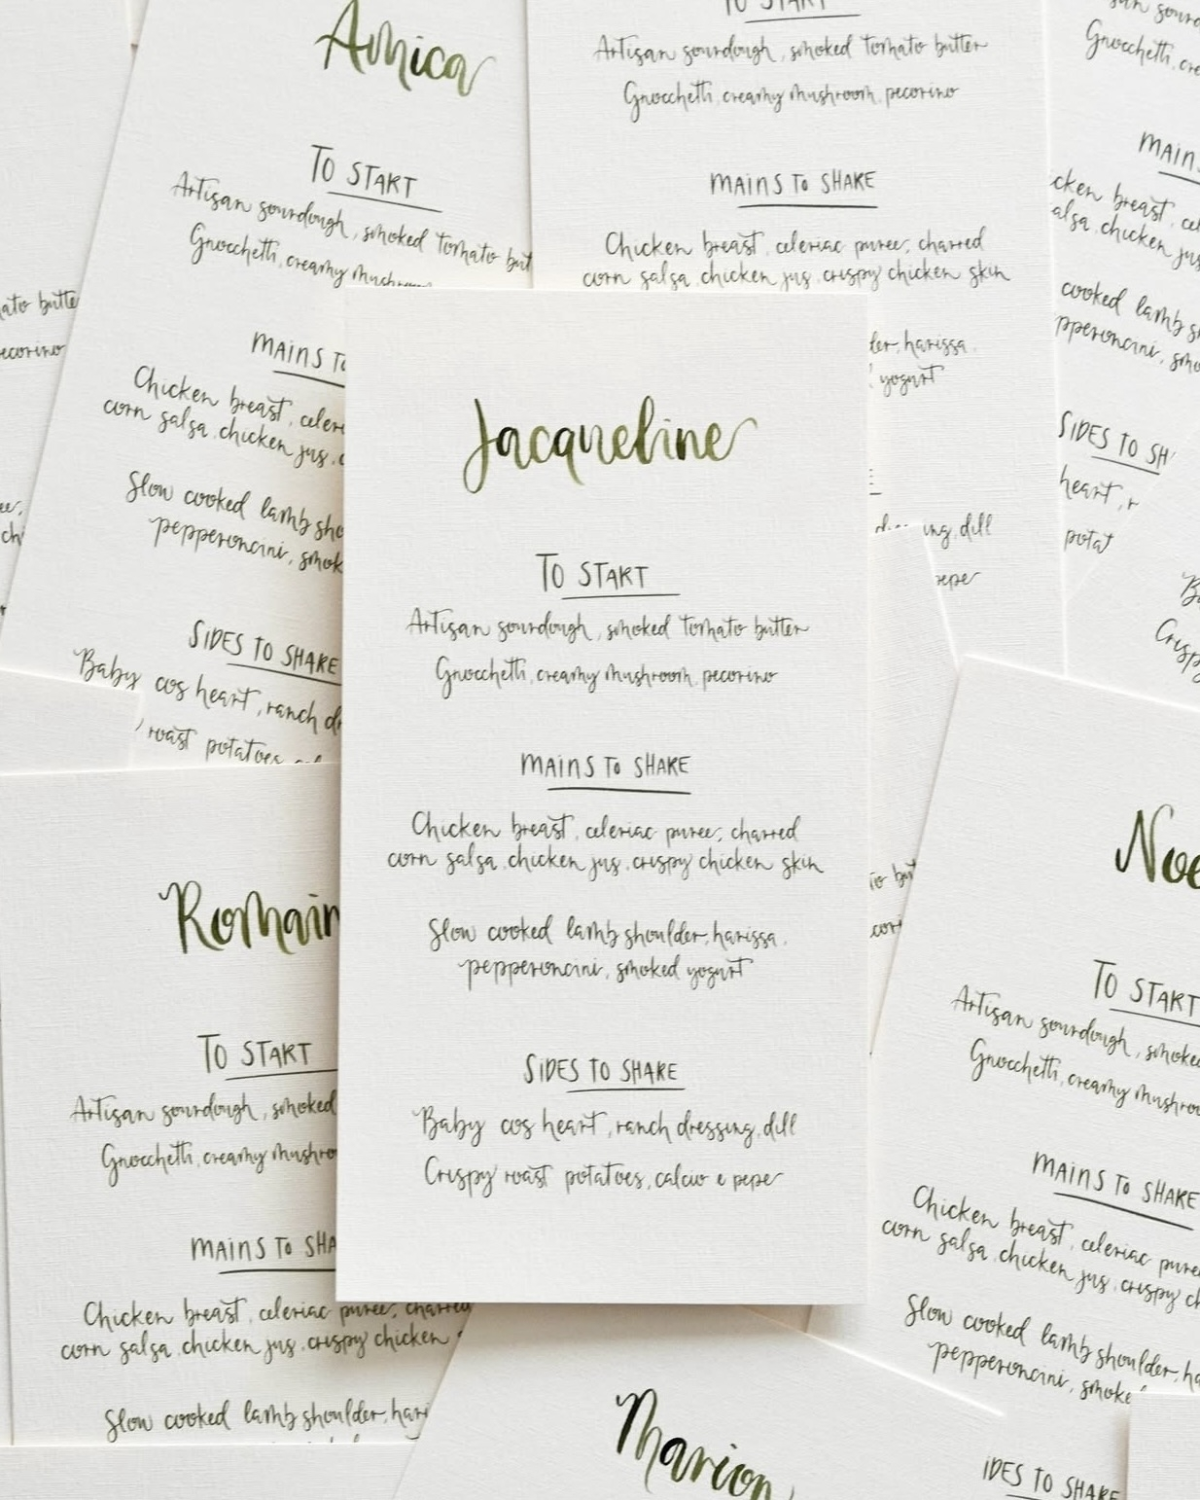 Amica
TO START
Artisan sourdough, smoked tomato but
Gnocchetti, creamy mushroom
MAINS TO
Chicken breast, celeri
corn salsa, chicken jus, c
Slow cooked lamb sho
pepperoncini, smok
SIDES TO SHARE
Baby cos heart, ranch d
roast potatoes
TO START
Artisan sourdough, smoked tomato butter
Gnocchetti, creamy mushroom, pecorino
MAINS TO SHARE
Chicken breast, celeriac puree, charred
corn salsa, chicken jus, crispy chicken skin
der, harissa,
yogurt
ing, dill
pepe
Gnocchetti, cre
MAINS
cken breast, ce
alsa, chicken jus
cooked lamb s
pperoncini, smo
SIDES TO SH
heart, r
potat
Crispy
ato butte
ecorino
Jacqueline
TO START
Artisan sourdough, smoked tomato butter
Gnocchetti, creamy mushroom, pecorino
MAINS TO SHARE
Chicken breast, celeriac puree, charred
corn salsa, chicken jus, crispy chicken skin
Slow cooked lamb shoulder, harissa,
pepperoncini, smoked yogurt
SIDES TO SHARE
Baby cos heart, ranch dressing, dill
Crispy roast potatoes, calcio e pepe
Romain
TO START
Artisan sourdough, smoked
Gnocchetti, creamy mushro
MAINS TO SHA
Chicken breast, celeriac puree, charred
corn salsa, chicken jus, crispy chicken
Slow cooked lamb shoulder, hari
Noe
TO START
Artisan sourdough, smoked
Gnocchetti, creamy mushroo
MAINS TO SHARE
Chicken breast, celeriac puree
corn salsa, chicken jus, crispy c
Slow cooked lamb shoulder, ha
pepperoncini, smoke
IDES TO SHARE
Marion